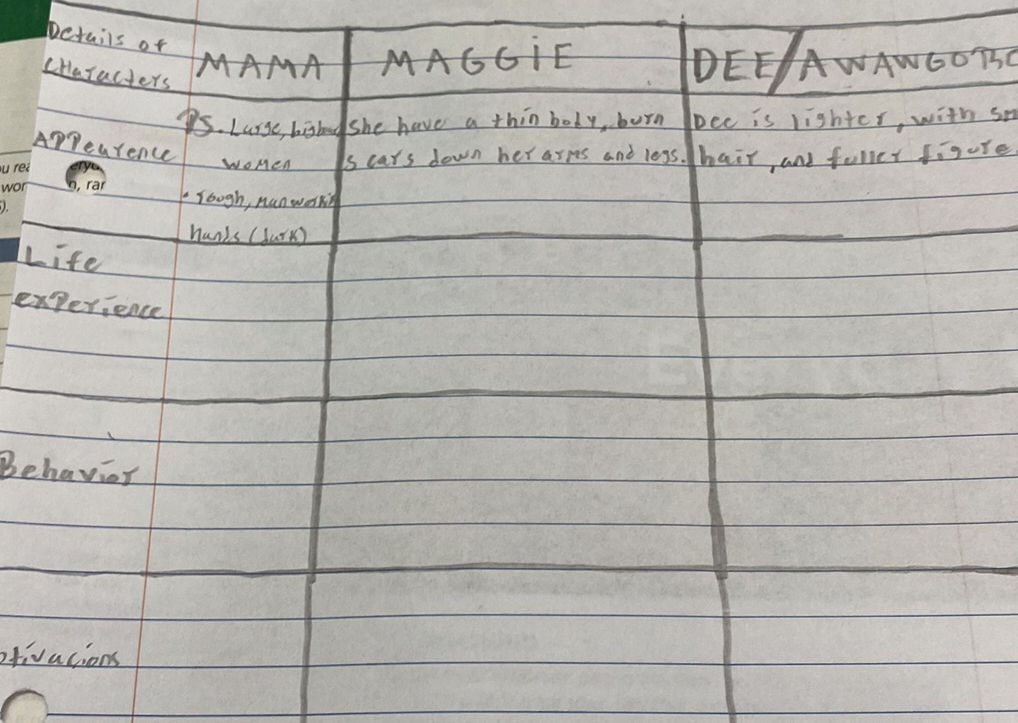 Details of
Characters
MAMA
MAGGIE
DEE/AWAWGO
Appearence
Ps. Large, big
women
• rough, man workin
hands (dark)
She have a thin body, burn
scars down her arms and legs.
Dee is lighter, with
hair, and fuller figure
Life
experience
Behavior
otivacions
u rea
wor
eryo
n, rar
).